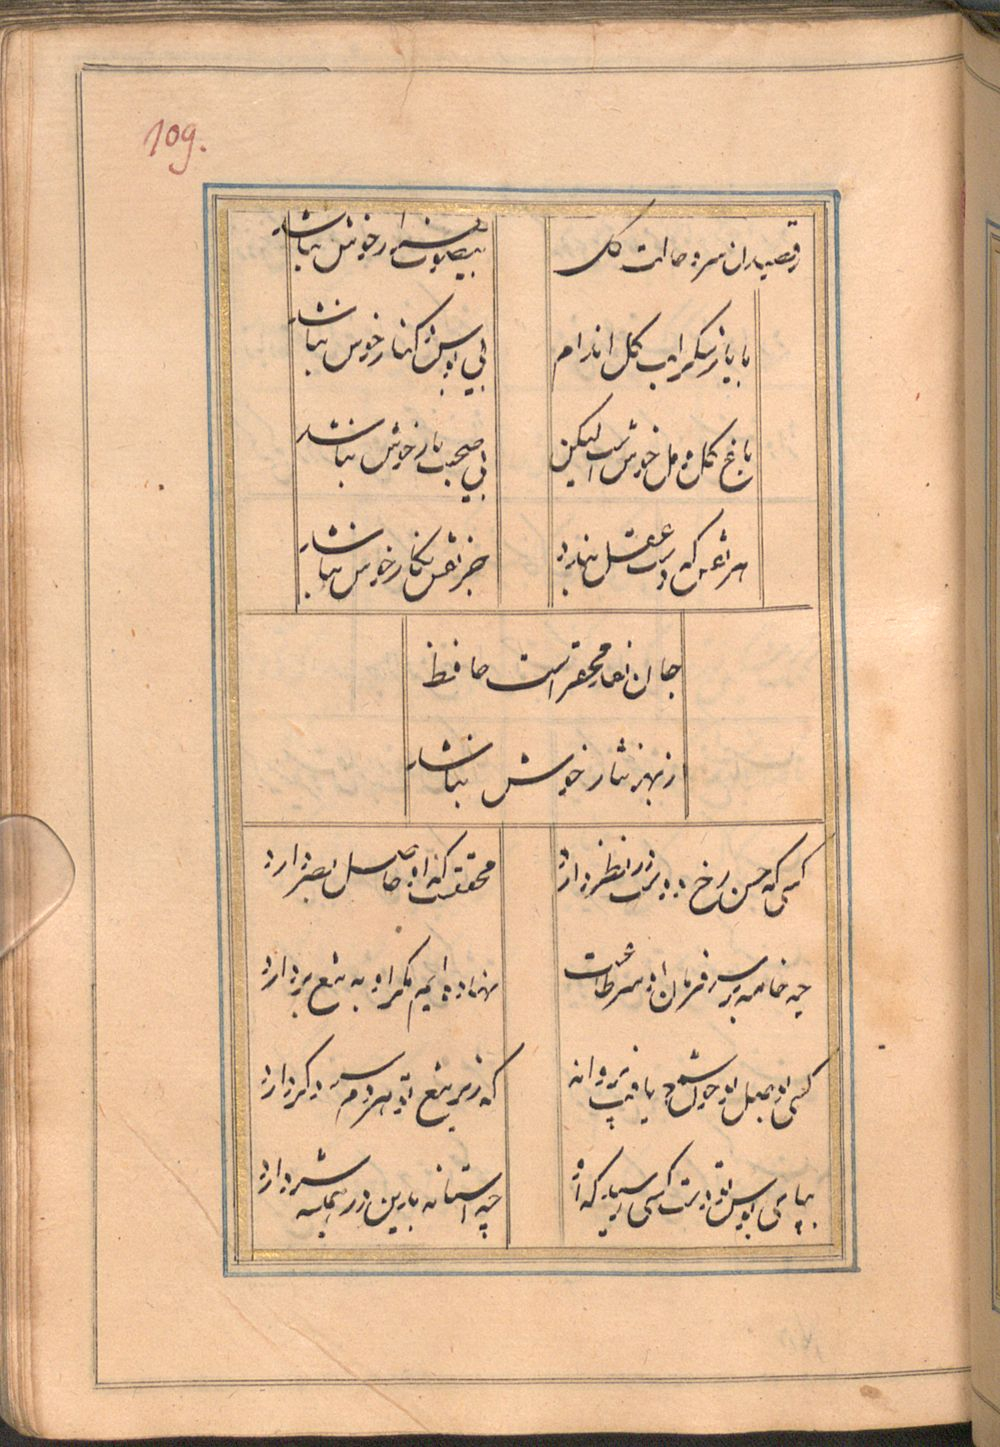 109.
رقصیدن سرو و حالت گل
بیصوت هزار خوش نباشد
با یار شکر لب گل اندام
بی بوس و کنار خوش نباشد
باغ گل و مل خوش است لیکن
بی صحبت یار خوش نباشد
هر نقش که دست عقل بندد
جز نقش نگار خوش نباشد
جان نقد محقر است حافظ
از بهر نثار خوش نباشد
کسی که حسن رخ دوست در نظر دارد
محققست که او حاصل بصر دارد
چو خامه بر سر فرمان او سر طاعت
نهاده‌ایم مگر او به تیغ بردارد
کسی بوصل تو چون شمع یافت پروانه
که زیر تیغ تو هر دم سر دگر دارد
بپای بوس تو دست کسی رسید که او
چو آستانه بدین در همیشه سر دارد